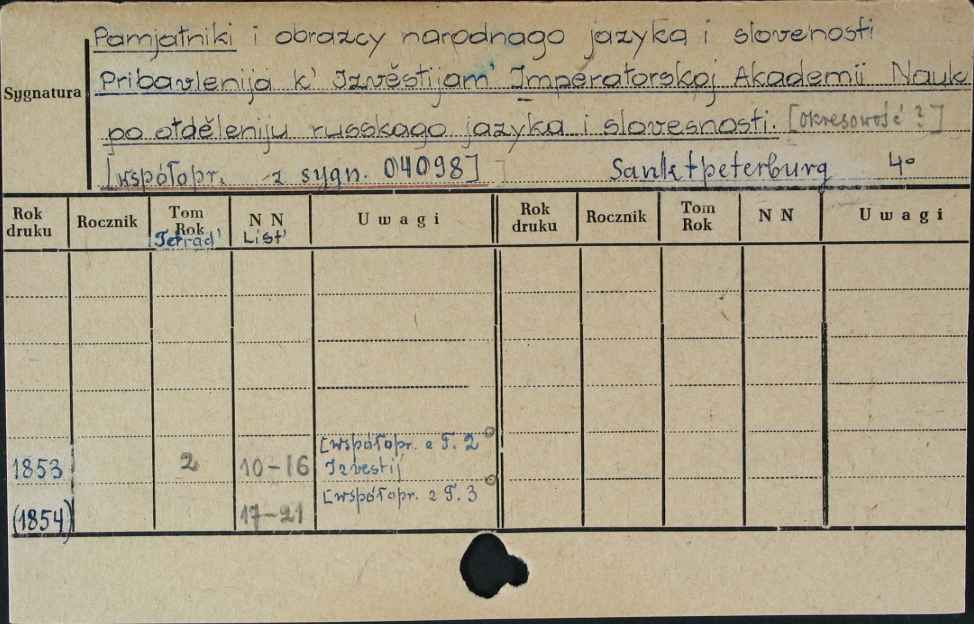 Pamjatniki i obrazcy narodnago jazyka i slovenosti
Sygnatura
Pribavlenija k' Izvěstijam' Imperatorskoj Akademii Nauk
po otděleniju russkago jazyka i slovesnosti. [okresowość ?]
[współopr. z sygn. 04098] Sanktpeterburg 4°
Rok druku Rocznik Tom Rok Tetrad' N N List' Uwagi Rok druku Rocznik Tom Rok N N Uwagi
[współopr. z T. 2
1853 2 10-16 Izvestij
[współopr. z T. 3
(1854) 17-21